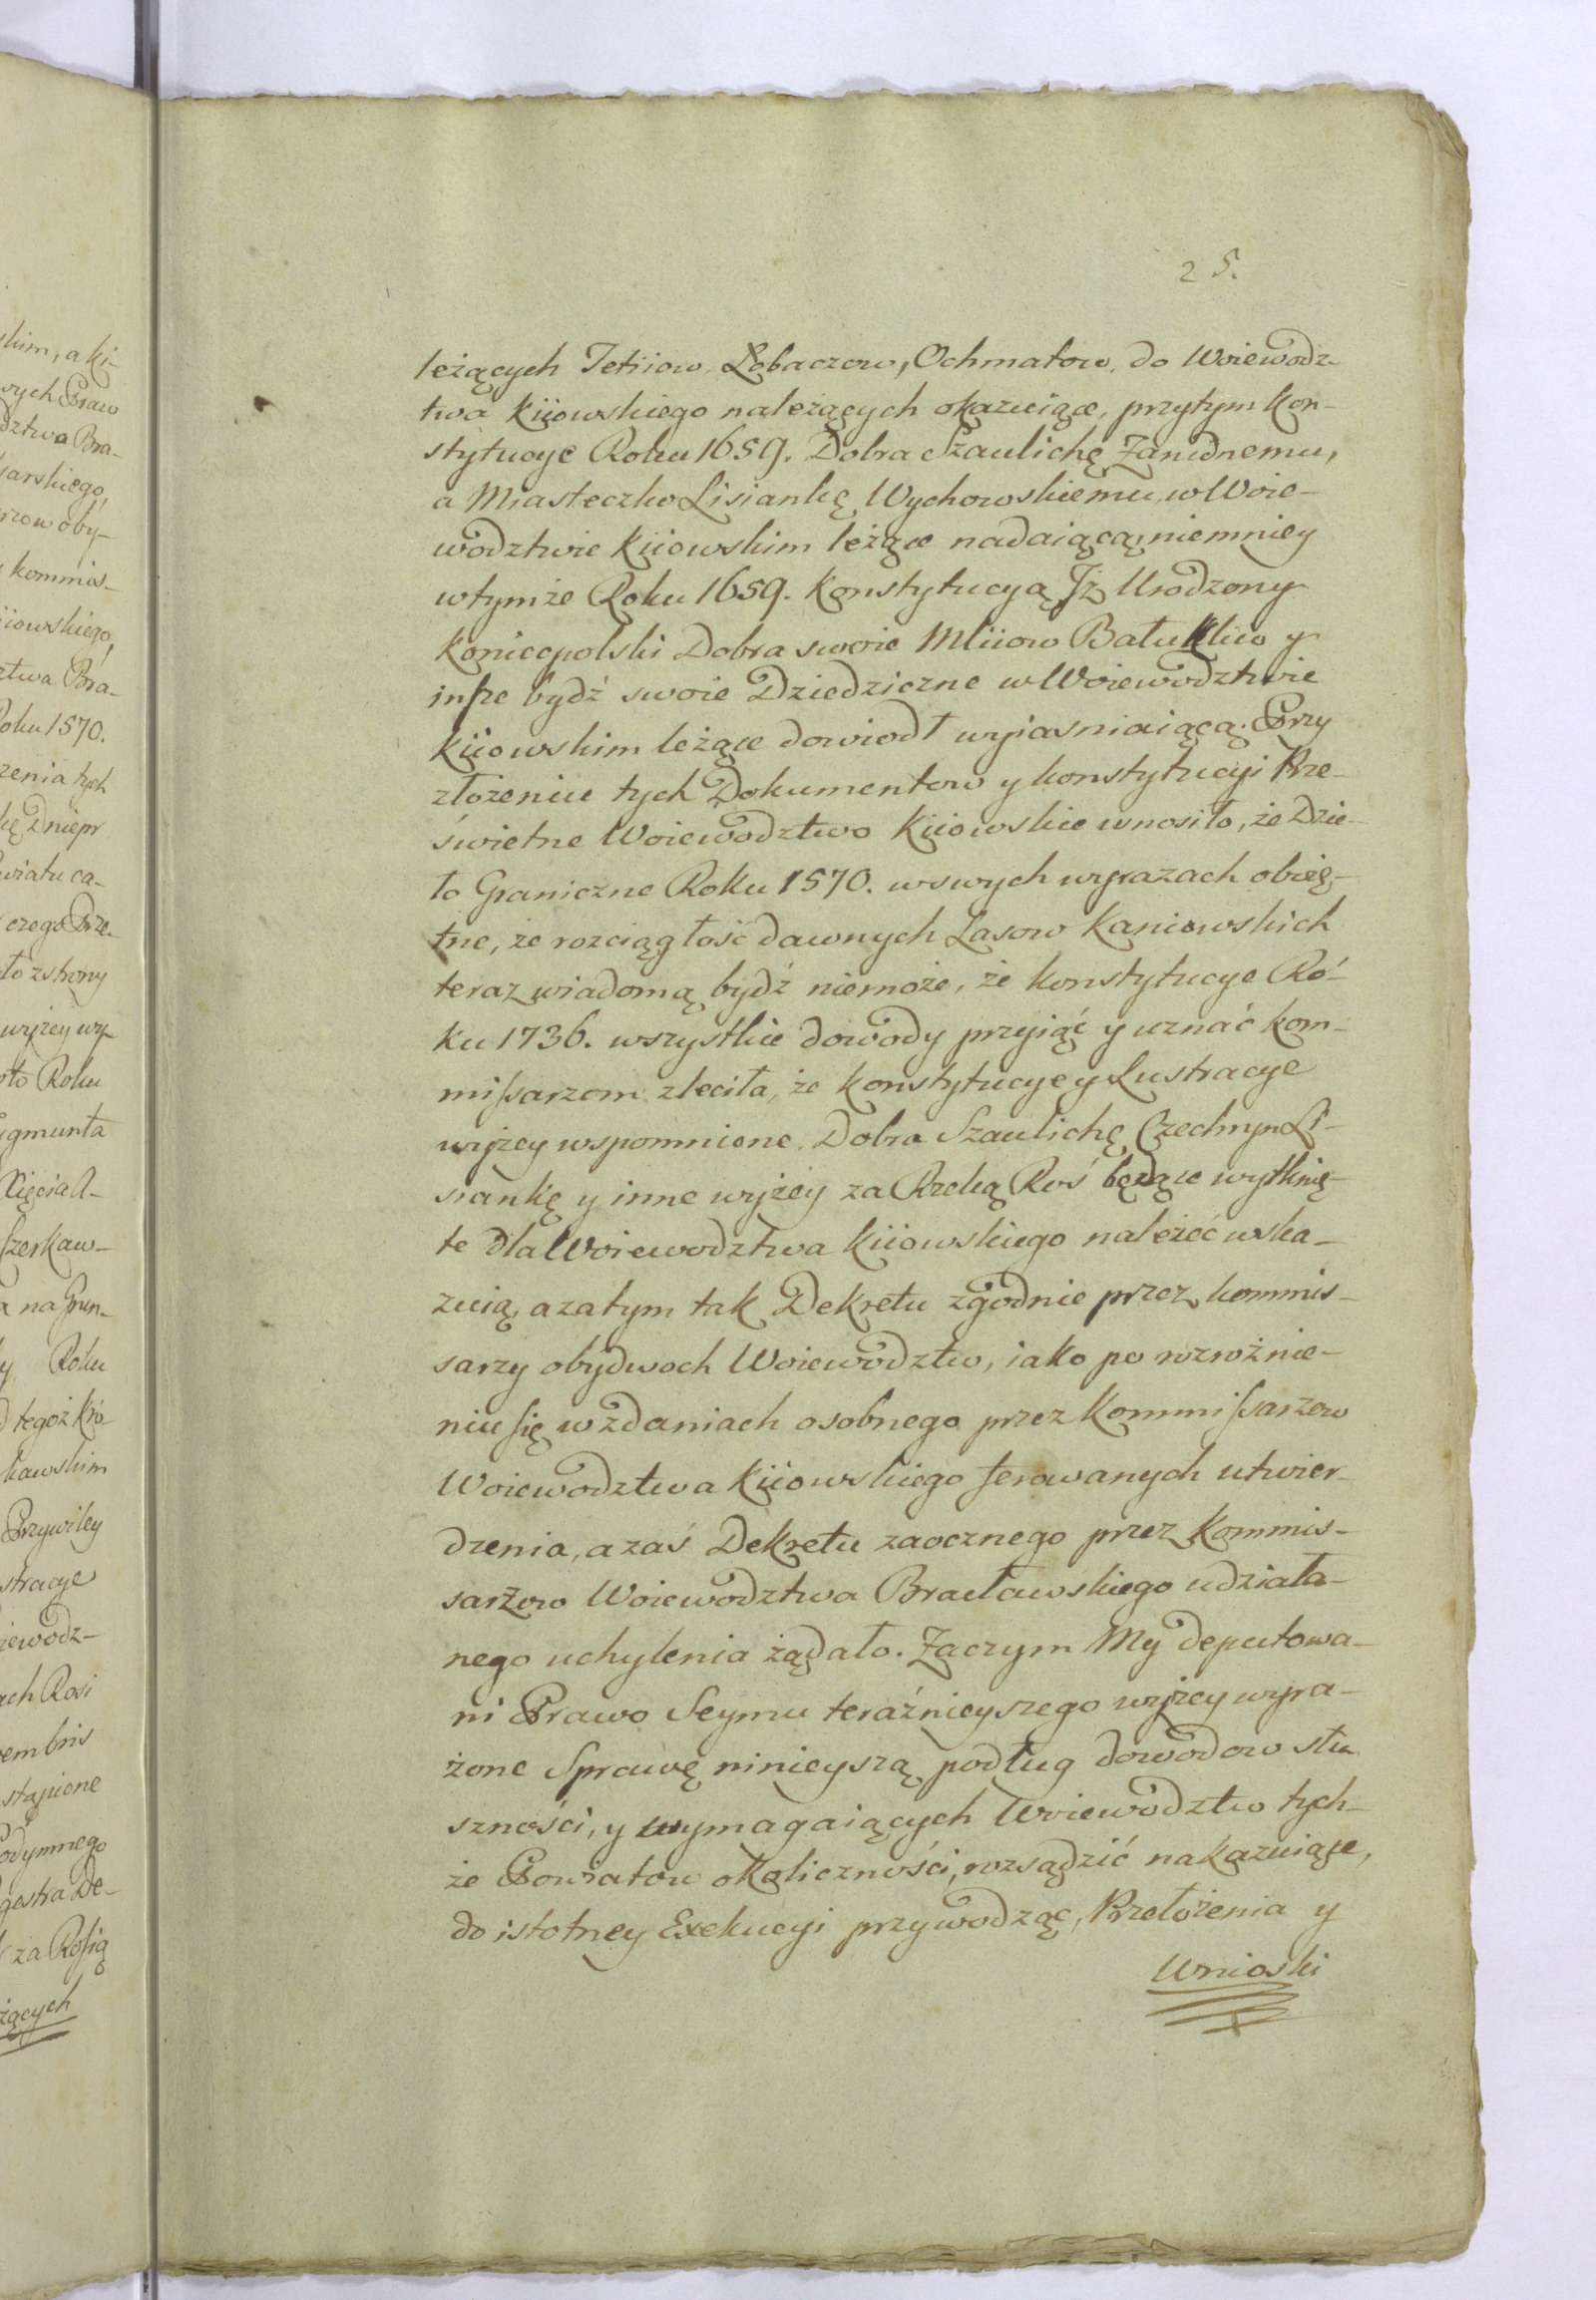 25.
leżących Tetiiow Łobaczow, Ochmatow, do Woiewodz-
twa Kiiowskiego należących okazuiące, przytym Kon-
stytucye Roku 1659. Dobra Szaulichę Zanudnemu,
a Miasteczko Lisiankę Wychowskiemu, w Woie-
wodztwie Kiiowskim leżące nadaiącą, niemniey
w tymże Roku 1659. Konstytucyą Jż Urodzony
Koniecpolski Dobra swoie Mliiow Batukliio y
inſze bydź swoie Dziedziczne w Woiewodztwie
Kiiowskim leżące dowiodł wyiasniaiącą. Przy
złożeniu tych Dokumentow y konstytucyi Prze-
świetne Woiewodztwo Kiiowskie wnosiło, że Dzie-
ło Graniczne Roku 1570. w swych wyrazach oboię-
tne, że rozciągłość dawnych Lasow Kaniowskich
teraz wiadomą bydź niemoże, że konstytucye Ro-
ku 1736. wszystkie dowody przyiąć y uznać kom-
miſsarzom zleciła, że konstytucye y Lustracye
wyżey wspomnione. Dobra Szaulichę Czechryn Li-
siankę y inne wyżey za Rzeką Roś będące wytknię-
te dla Woiewodztwa Kiiowskiego należeć wska-
zuią, a zatym tak Dekretu zgodnie przez kommis-
sarzy obydwoch Woiewodztw, iako po rozrożnie-
niu ſię w zdaniach osobnego przez Kommiſsarzow
Woiewodztwa Kiiowskiego ferowanych utwier-
dzenia, a zaś Dekretu zaocznego przez Kommis-
sarzow Woiewodztwa Bracławskiego udziała-
nego uchylenia żądało. Zaczym My deputowa-
ni Prawo Seymu teraźnieyszego wyżey wyra-
żone Sprawę ninieyszą podług dowodow słu
szności, y wymagaiących Woiewodztw tych-
że Powiatow okoliczności, rozsądzić nakazuiące,
do istotney Exekucyi przywodząc, Przełożenia y
Wnioski